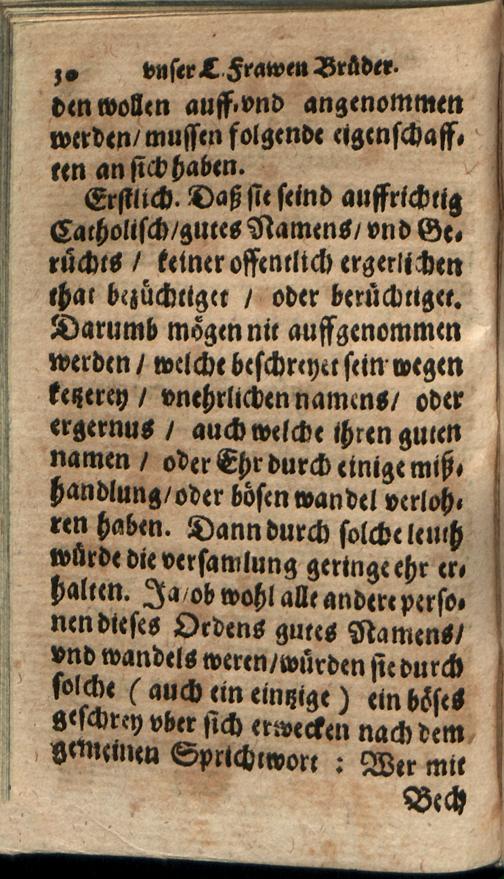 30 vnser L. Frawen Brüder.
den wollen auff-vnd angenommen
werden/mussen folgende eigenschaff-
ten an sich haben.
Erstlich. Daß sie seind auffrichtig
Catholisch/gutes Namens/ vnd Ge-
rüchts / keiner offentlich ergerlichen
that bezüchtiget / oder berüchtiget.
Darumb mögen nit auffgenommen
werden / welche beschreyet sein wegen
ketzerey / vnehrlichen namens/ oder
ergernus / auch welche ihren guten
namen / oder Ehr durch einige miß-
handlung/oder bösen wandel verloh-
ren haben. Dann durch solche leuth
würde die versamlung geringe ehr er-
halten. Ja/ob wohl alle andere perso-
nen dieses Ordens gutes Namens/
vnd wandels weren/würden sie durch
solche ( auch ein eintzige ) ein böses
geschrey vber sich erwecken nach dem
gemeinen Sprichtwort : Wer mit
Bech